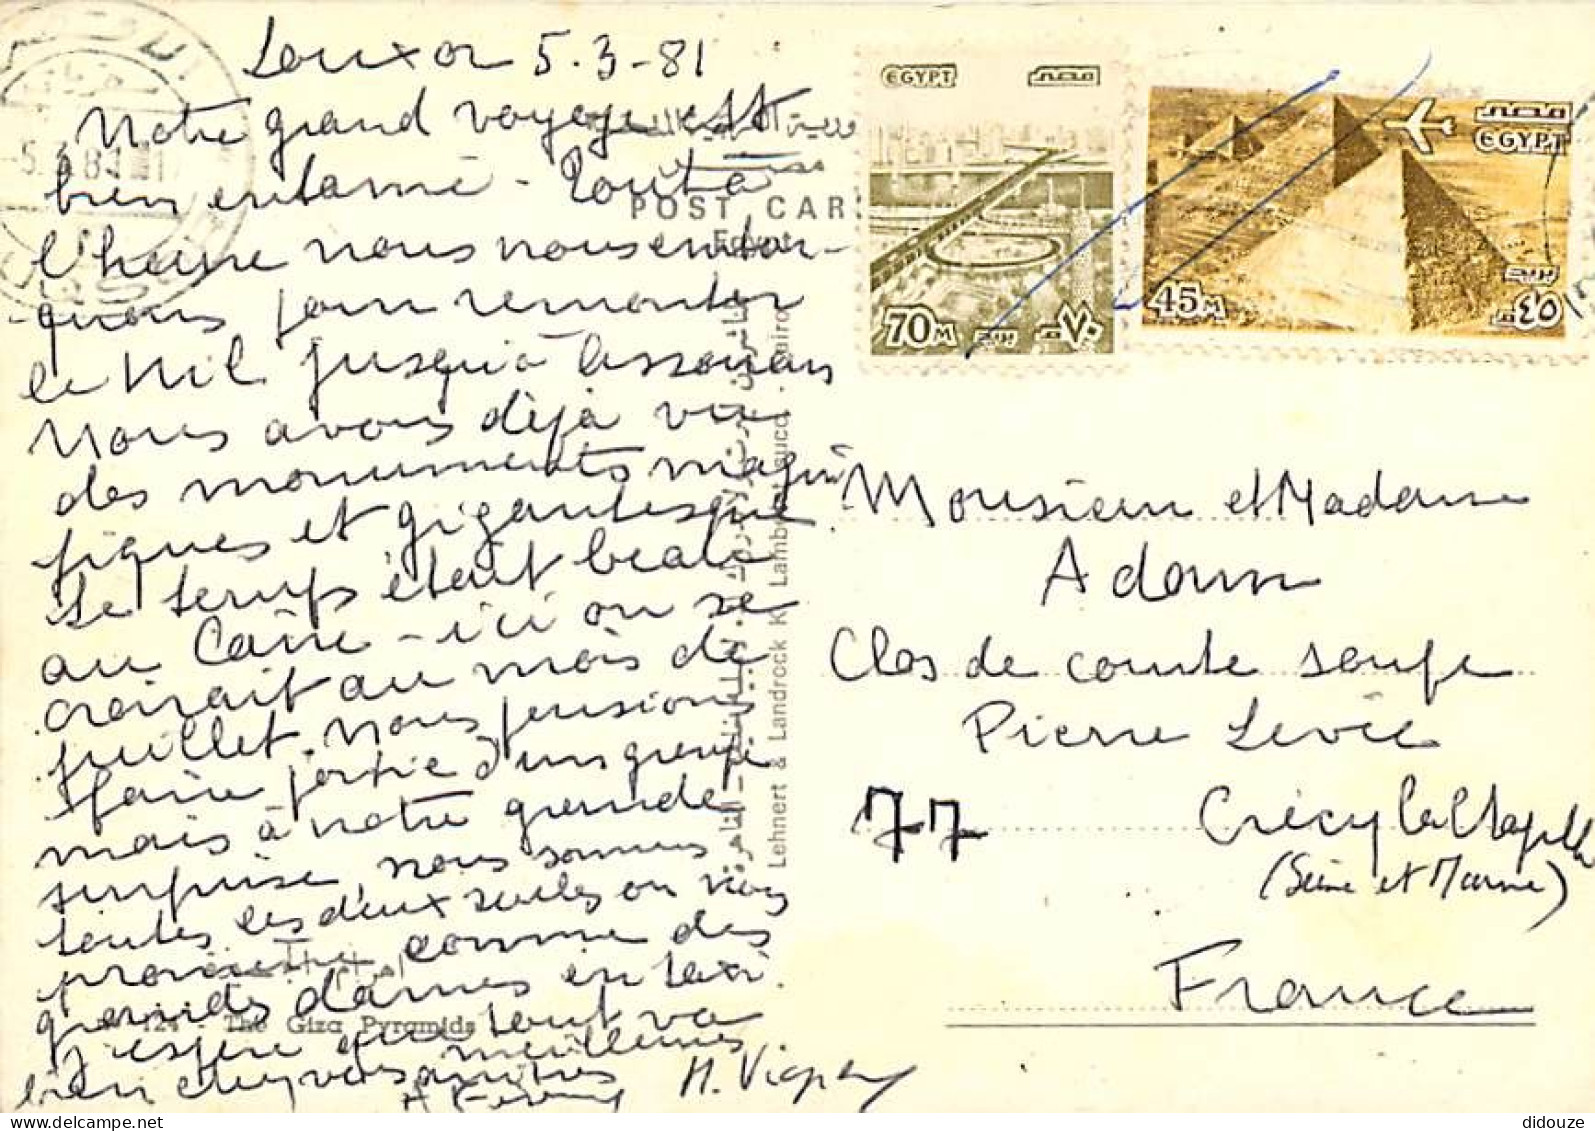 Louxor 5.3-81
Notre grand voyage est
bien entamé - Tout à
l'heure nous nous embar-
quons pour remonter
le Nil jusqu'à Assouan
Nous avons déjà vu
des monuments magni
fiques et gigantesques
Le temps était beau
au Caire - ici on se
croirait au mois de
juillet. Nous pensions
faire partie d'un groupe
mais à notre grande
surprise, nous sommes
toutes les deux seules on nous
promène comme des
grandes dames en taxi.
J'espère que tout va
bien chez vous meilleures
amitiés
H. Vign
POST CAR
Egypt
Lehnert & Landrock K. Lambelet succ. Cairo
124 - The Giza Pyramids
EGYPT
مصر
70M
بريد
٧٠
مصر
EGYPT
45M
بريد
٤٥
Monsieur et Madame
Adam
Clos de comte
Pierre Levée
77 Crécy la Chapelle
(Seine et Marne)
France
didouze